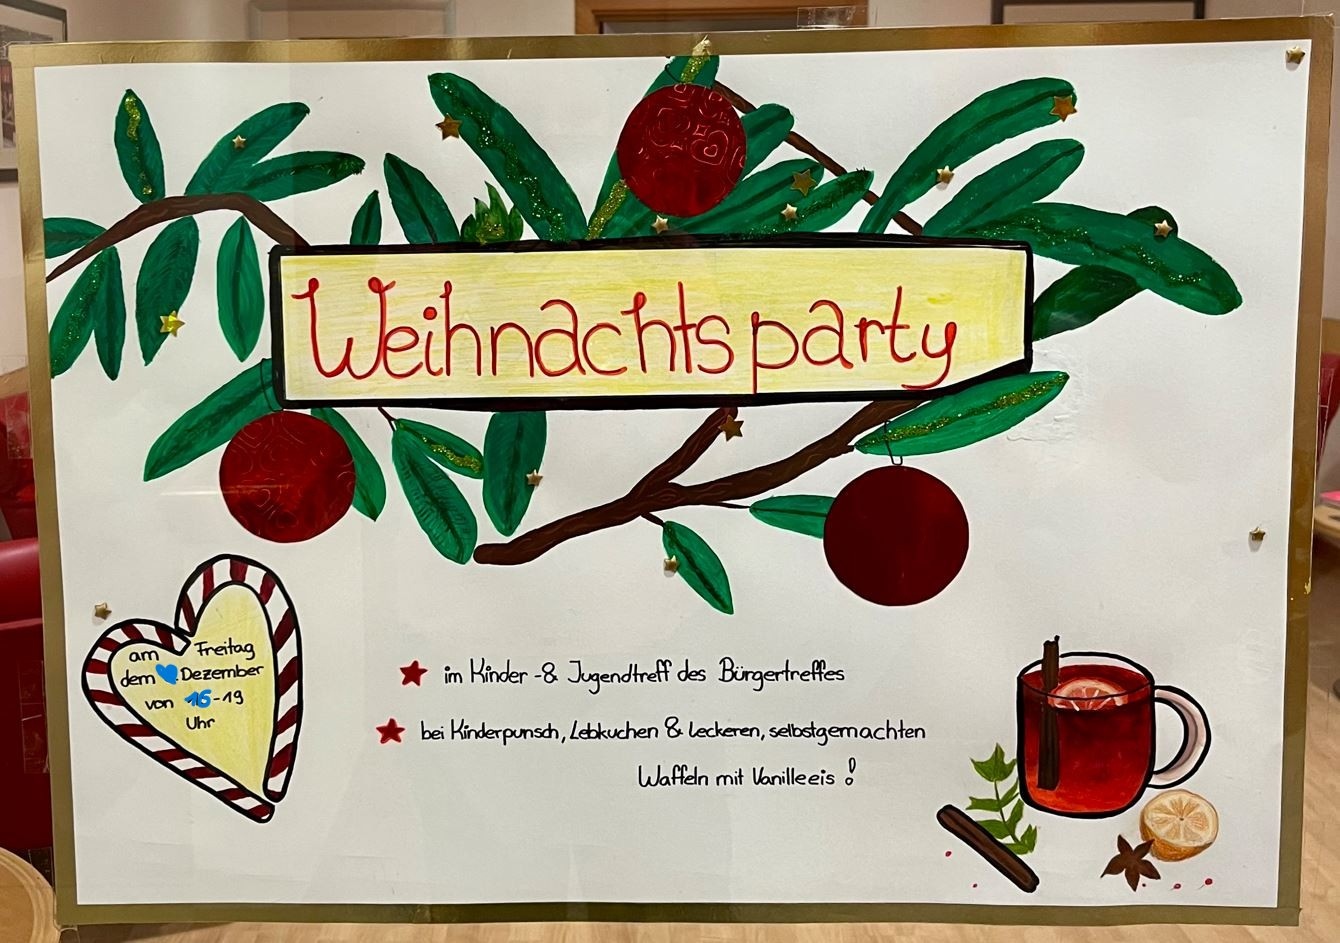 Weihnachtsparty
am Freitag
dem . Dezember
von 16-19
Uhr
im Kinder -& Jugendtreff des Bürgertreffes
bei Kinderpunsch, Lebkuchen & leckeren, selbstgemachten
Waffeln mit Vanilleeis !